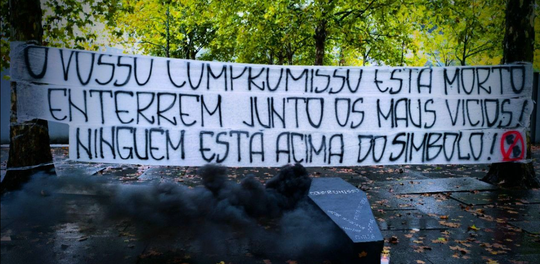 O VOSSO COMPROMISSO ESTÁ MORTO
ENTERREM JUNTO OS MAUS VÍCIOS!
NINGUÉM ESTÁ ACIMA DO SÍMBOLO!